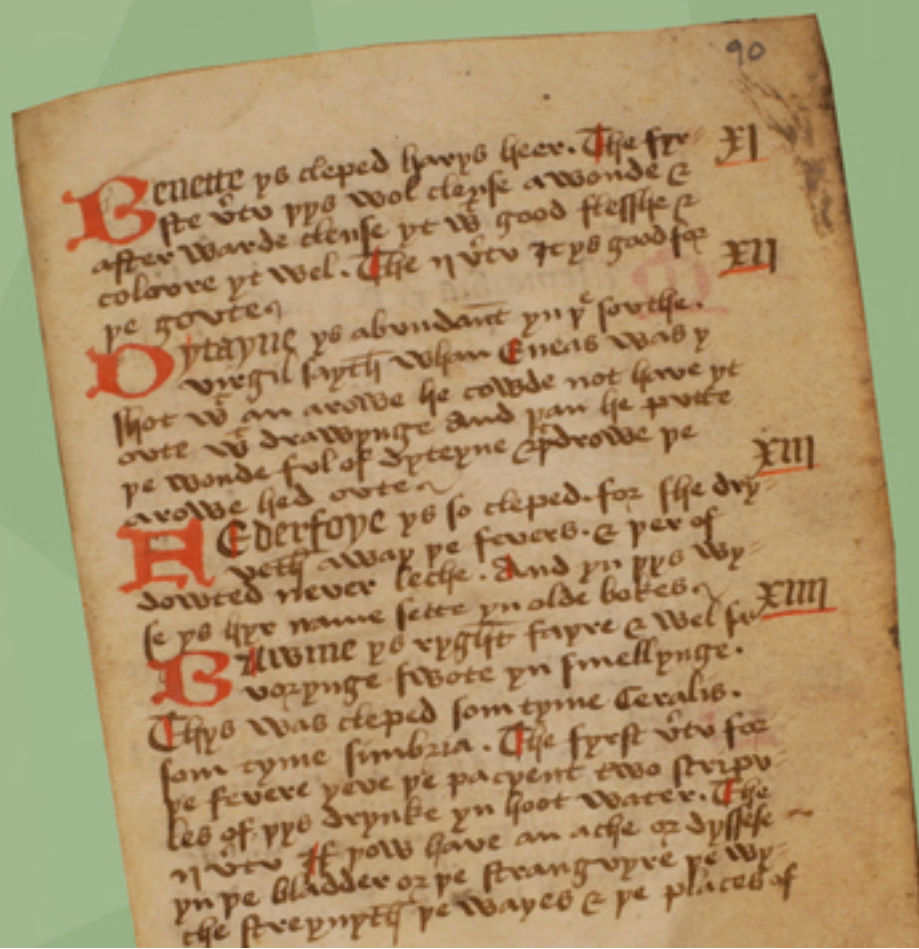 90
Benette ys cleped harys heer. The fyr= XI
ste v̉tu þys wol clense a wonde &
after warde clense yt wͭ good flesshe &
coloore yt wel. The ii v̉tu It ys good for XII
þe goute
Dytayne ys abundant̄ yn þͤ southe.
virgil sayth whan Eneas was y
shot wͭ an arowe he cowde not have yt
oute wͭ drawynge And þan he putte
þe wonde ful of dyteyne & drowe þe
arowe hed oute XIII
Federfoye ys so cleped. for she dry=
veth away þe fevers. & þer of
dowted never leche. And yn þys wy=
se ys hyr name sette yn olde bokes XIIII
ys ryght fayre & wel sa
vorynge swote yn smellynge.
Thys was cleped som tyme Ceralis.
som tyme simbria. The fyrst v̉tu for
þe fevere yeve þe pacyent two scripu
les of þys drynke yn hoot water. The
ii v̉tu If yow have an ache or dyssese
yn þe bladder or þe stranguyre þe wy=
che streynyth þe wayes & þe places of